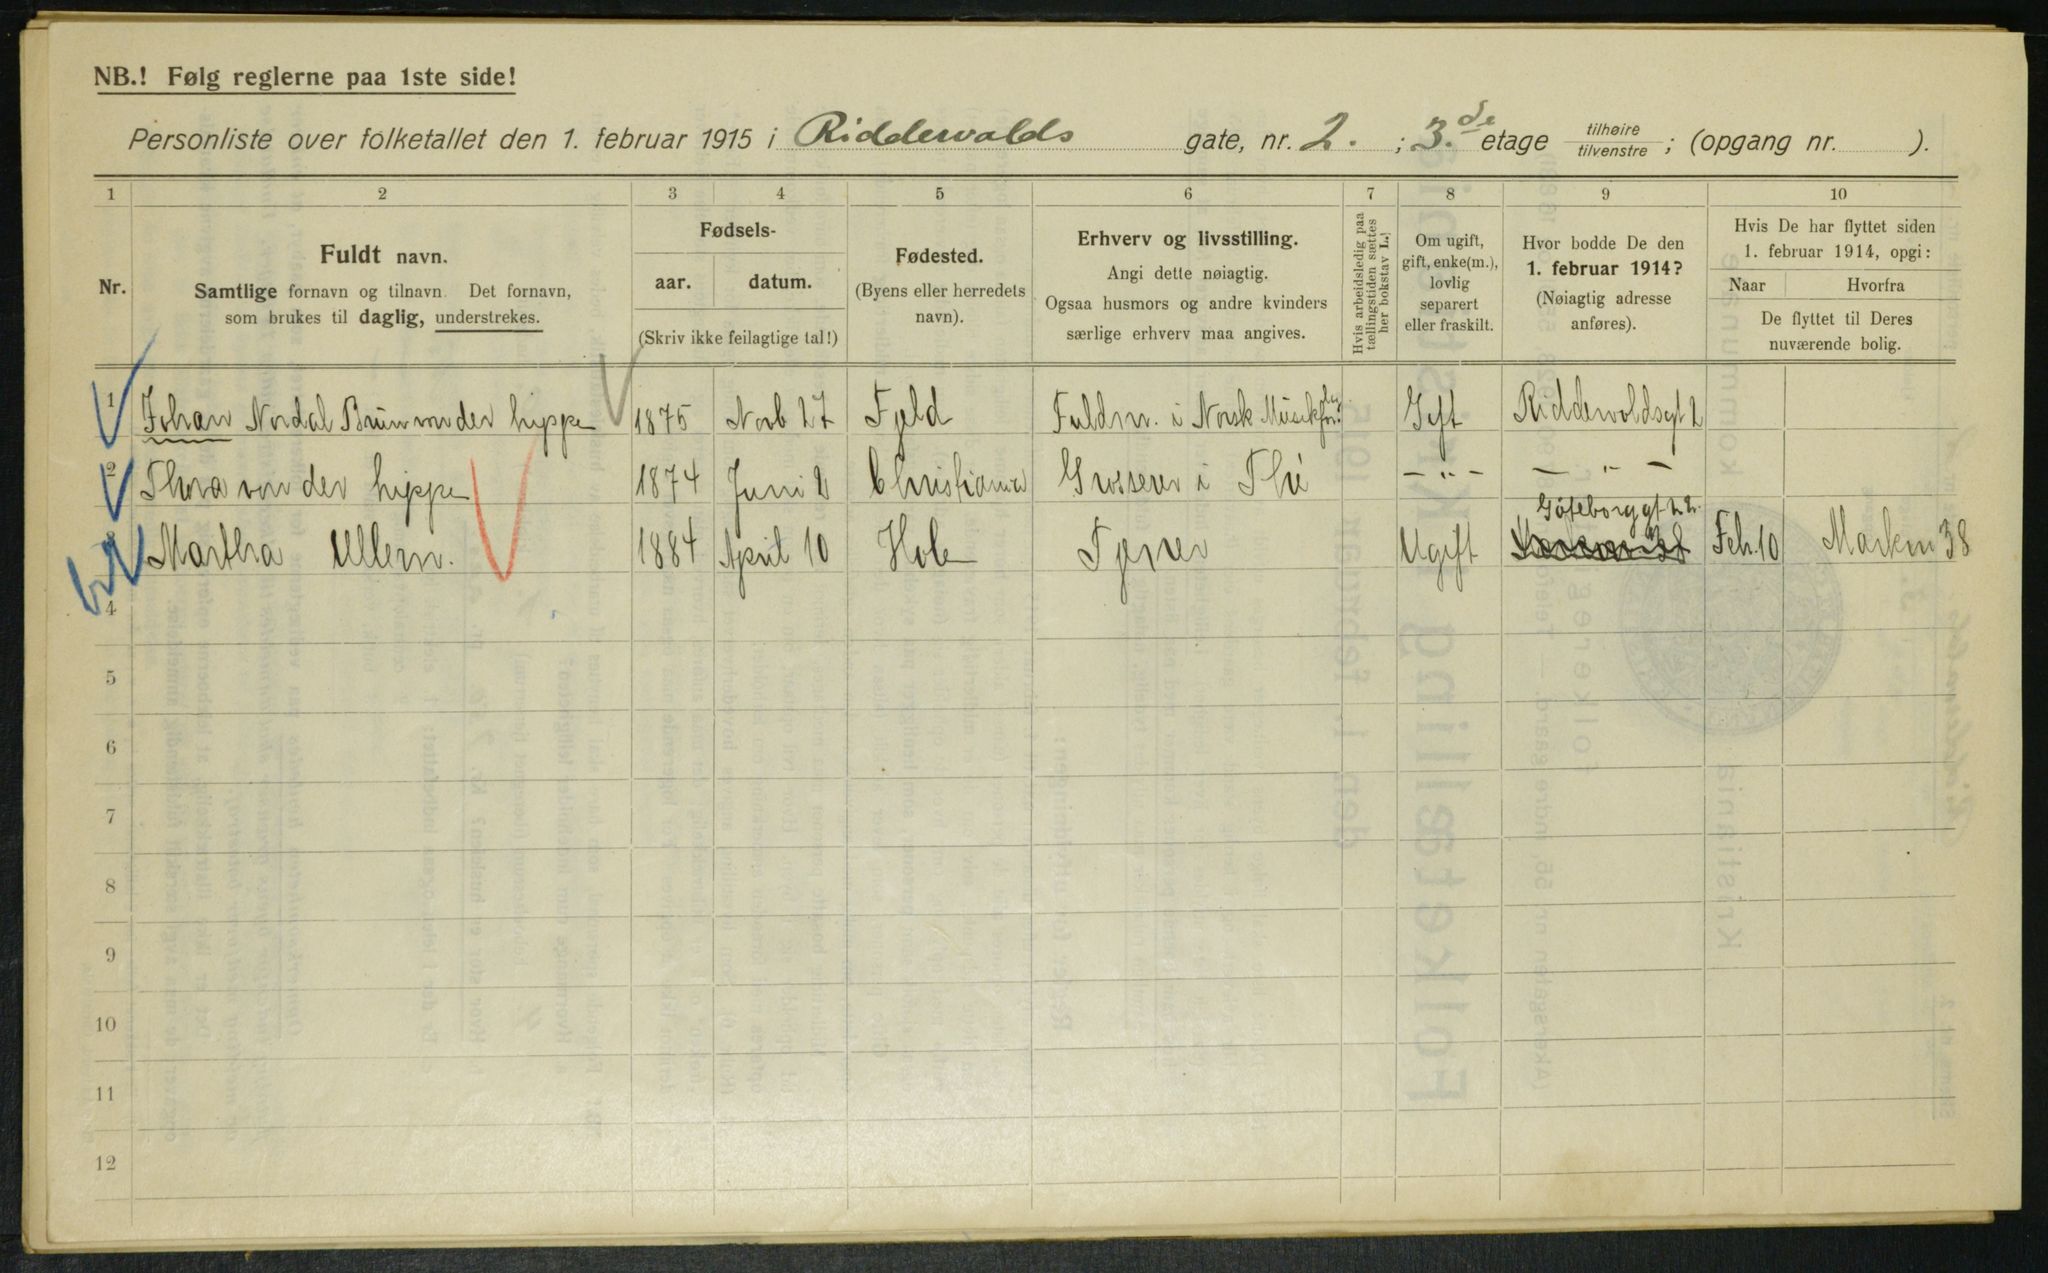 NB.! Følg reglerne paa 1ste side!
Personliste over folketallet den 1. februar 1915 i Riddervolds gate, nr. 2. ; 3.de etage tilhøire tilvenstre ; (opgang nr. ).
1 2 3 4 5 6 7 8 9 10
Nr.
Fuldt navn.
Samtlige fornavn og tilnavn Det fornavn,
som brukes til daglig, understrekes.
Fødsels-
aar. datum.
(Skriv ikke feilagtige tal!)
Fødested.
(Byens eller herredets
navn).
Erhverv og livsstilling.
Angi dette nøiagtig.
Ogsaa husmors og andre kvinders
særlige erhverv maa angives.
Hvis arbeidsledig paa
tællingstiden sættes
her bokstav L.
Om ugift,
gift, enke(m.),
lovlig
separert
eller fraskilt.
Hvor bodde De den
1. februar 1914?
(Nøiagtig adresse
anføres).
Hvis De har flyttet siden
1. februar 1914, opgi:
Naar Hvorfra
De flyttet til Deres
nuværende bolig.
1 Johan Nordal Brun von der Lippe 1875 Novb 27 Fjeld Fuldm. i Norsk Musikforlag Gift Riddervoldsgt 2
2 Thora von der Lippe 1874 Juni 2 Christiania Grosserer i Thé — " — — " —
3 Martha Ullern. 1884 April 10 Hole Tjener Ugift Göteborggt 22. Feb. 10 Markvn 38
4
5
6
7
8
9
10
11
12